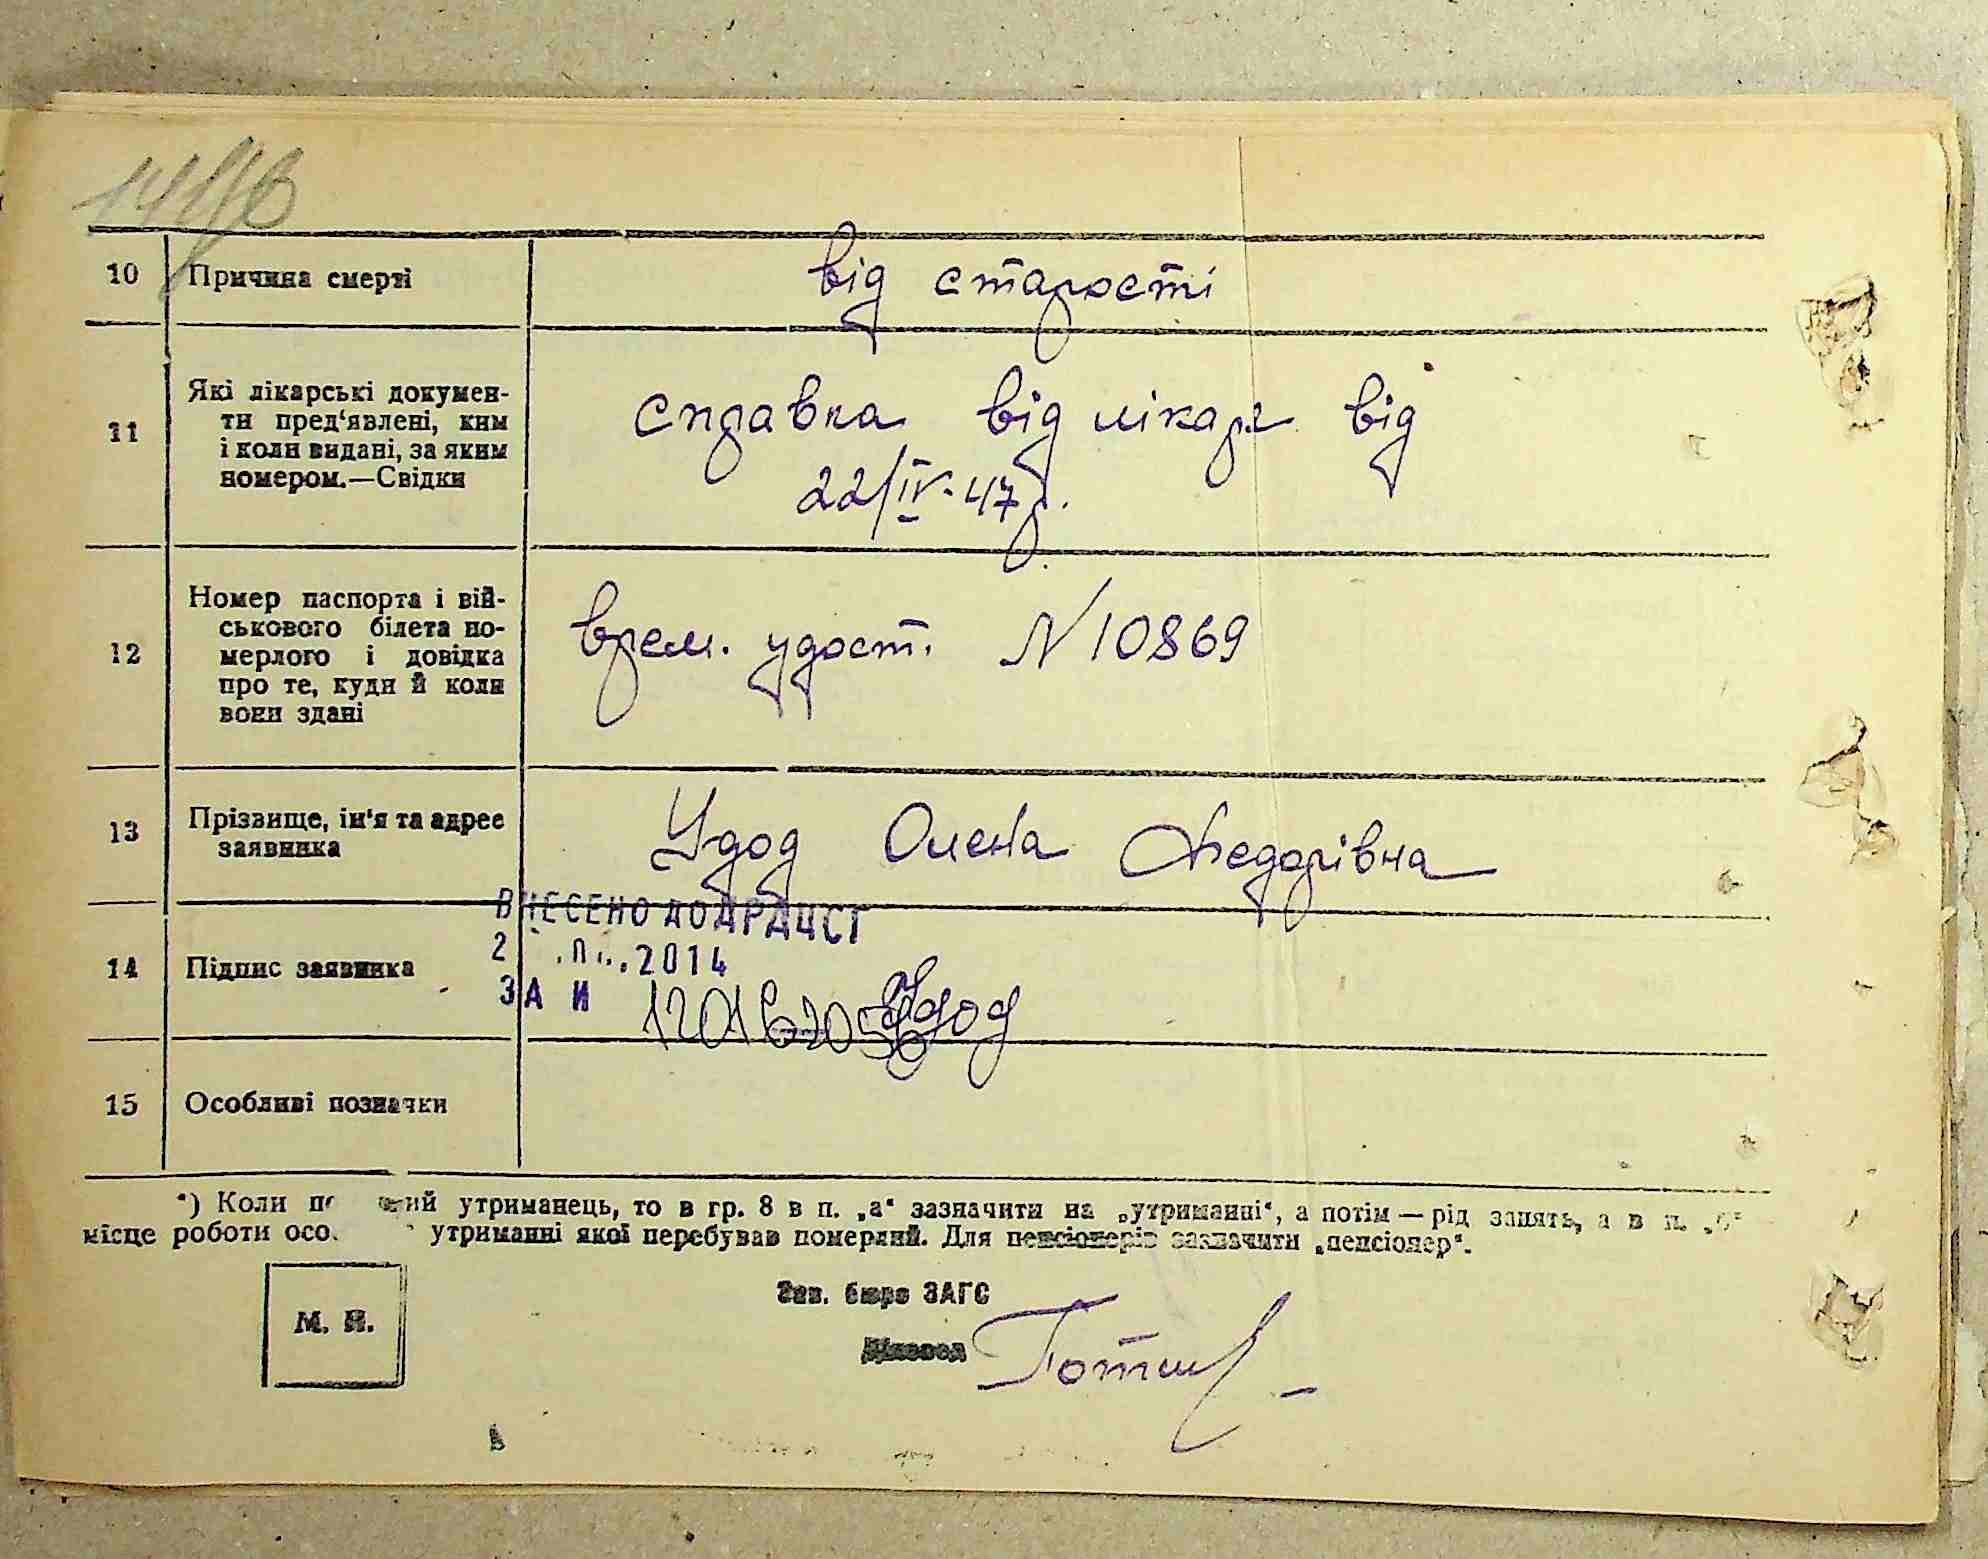 10 Причина смерті від старості
11 Які лікарські докумен-
ти пред‘явлені, ким
і коли видані, за яким
номером.—Свідки
справка від лікаря від
22/IV-47р.
12 Номер паспорта і вій-
ськового білета по-
мерлого і довідка
про те, куди й коли
вони здані
врем. удост. N 10869
13 Прізвище, ім'я та адрес
заявника
Удод Олена Федорівна
ВНЕСЕНО ДО ДРАЦСГ
2014
14 Підпис заявника
ЗА И
Удод
15 Особливі позначки
*) Коли утриманець, то в гр. 8 в п. „а“ зазначити на „утриманні“, а потім — рід занять, а в п.
місце роботи утриманні якої перебував померлий. Для пенсіонерів зазначити „пенсіонер“.
М. П.
Зав. бюро ЗАГС